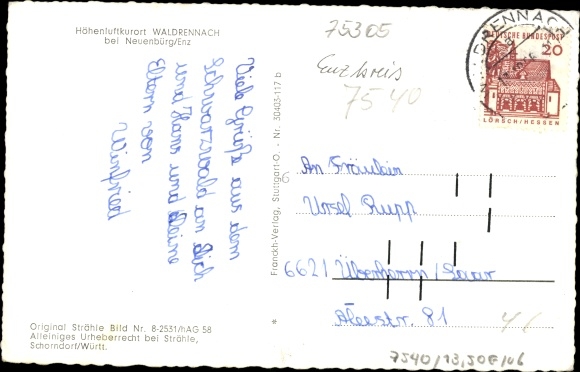 Höhenluftkurort WALDRENNACH
bei Neuenbürg/Enz
Viele Grüße aus dem
Schwarzwald an Dich
und Hans und Deine
Eltern von
Winfried
Original Strähle Bild Nr. 8-2531/hAG 58
Alleiniges Urheberrecht bei Strähle,
Schorndorf/Württ.
Franckh-Verlag, Stuttgart-O. - Nr. 30403-117 b
75305
Enzkreis
7540
DEUTSCHE BUNDESPOST
20
LORSCH/HESSEN
An Fräulein
Ursel Rupp
6621 Überherrn/Saar
Aleestr. 81
7540/13,50E/06